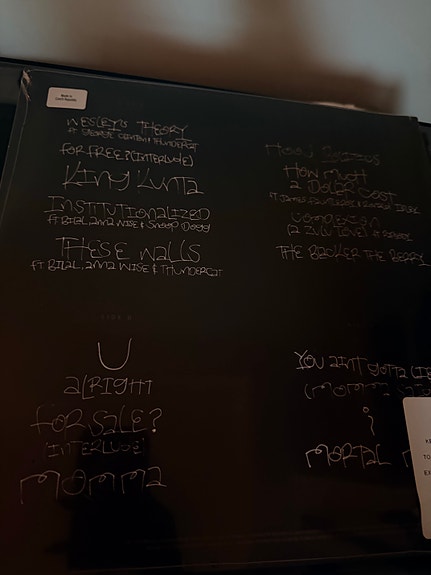 Made in
Czech Republic
WESLEY'S THEORY
FT GEORGE CLINTON & THUNDERCAT
FOR FREE? (INTERLUDE)
KING KUNTA
INSTITUTIONALIZED
FT BILAL, ANNA WISE & SNOOP DOGG
THESE WALLS
FT BILAL, ANNA WISE & THUNDERCAT
HOOD
HOW MUCH
A DOLLAR COST
FT JAMES FAUNTLEROY & RONALD ISLEY
COMPLEXION
(A ZULU LOVE) FT RAPSODY
THE BLACKER THE BERRY
U
ALRIGHT
FOR SALE?
'INTERLUDE'
MOMMA
YOU AINT GOTTA LIE
(MOMMA
i
MORTAL
KE
TO
EX